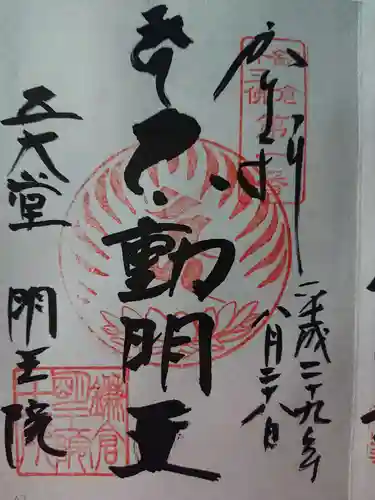 鎌倉
十三佛
第一番
平成二十九年
八月二十八日
不動明王
五大堂 明王院